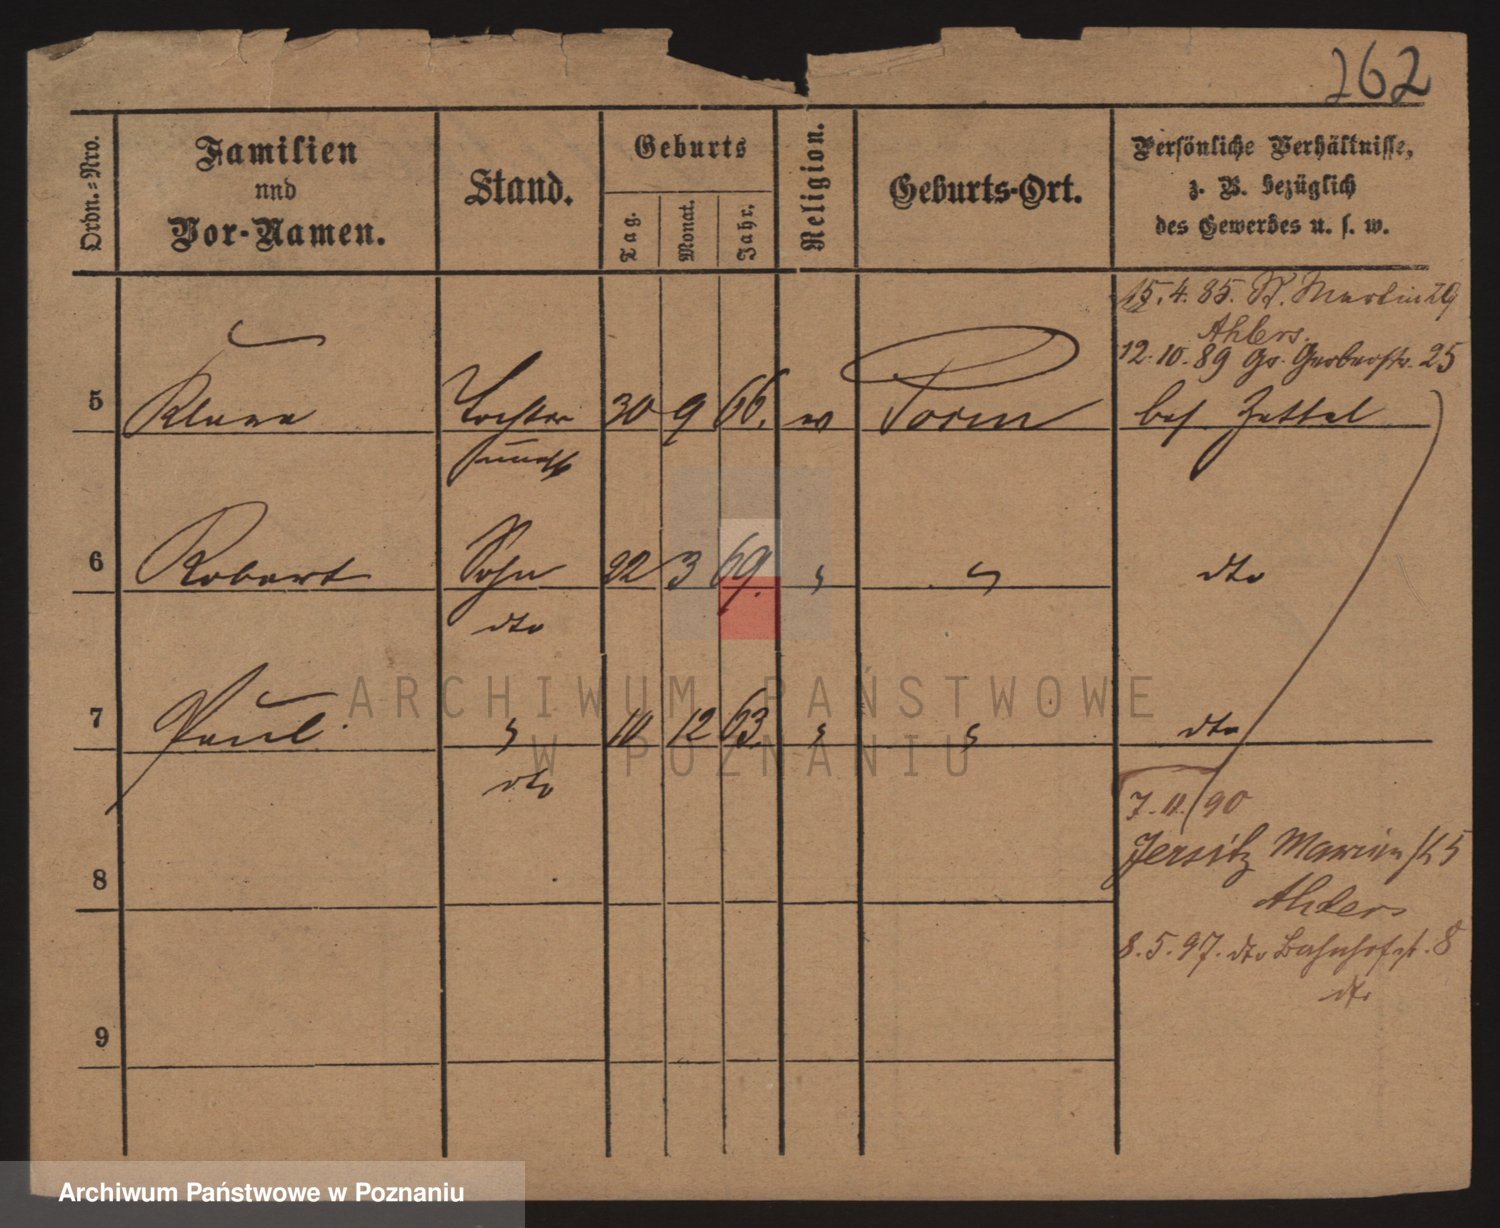 262
Ordn.-Nro.
Familien
und
Vor-Namen.
Stand.
Geburts
Tag.
Monat.
Jahr.
Religion.
Geburts-Ort.
Persönliche Verhältnisse,
z. B. bezüglich
des Gewerbes u. s. w.
15.4.85. St. Martin 79
Ahlers.
12.10.89 Gr. Gerberstr. 25
5 Klara Tochter 30 9 66. Posen bes. Zettel
6 Robert Sohn 22 3 69. " " dto
dto
7 Paul " 10 12 63. " " dto
dto
7.11.90
Jersitz Marien 5
8
Ahlers
8.5.97. dto Bahnhofst. 8
dto
9
ARCHIWUM PAŃSTWOWE
W POZNANIU
Archiwum Państwowe w Poznaniu